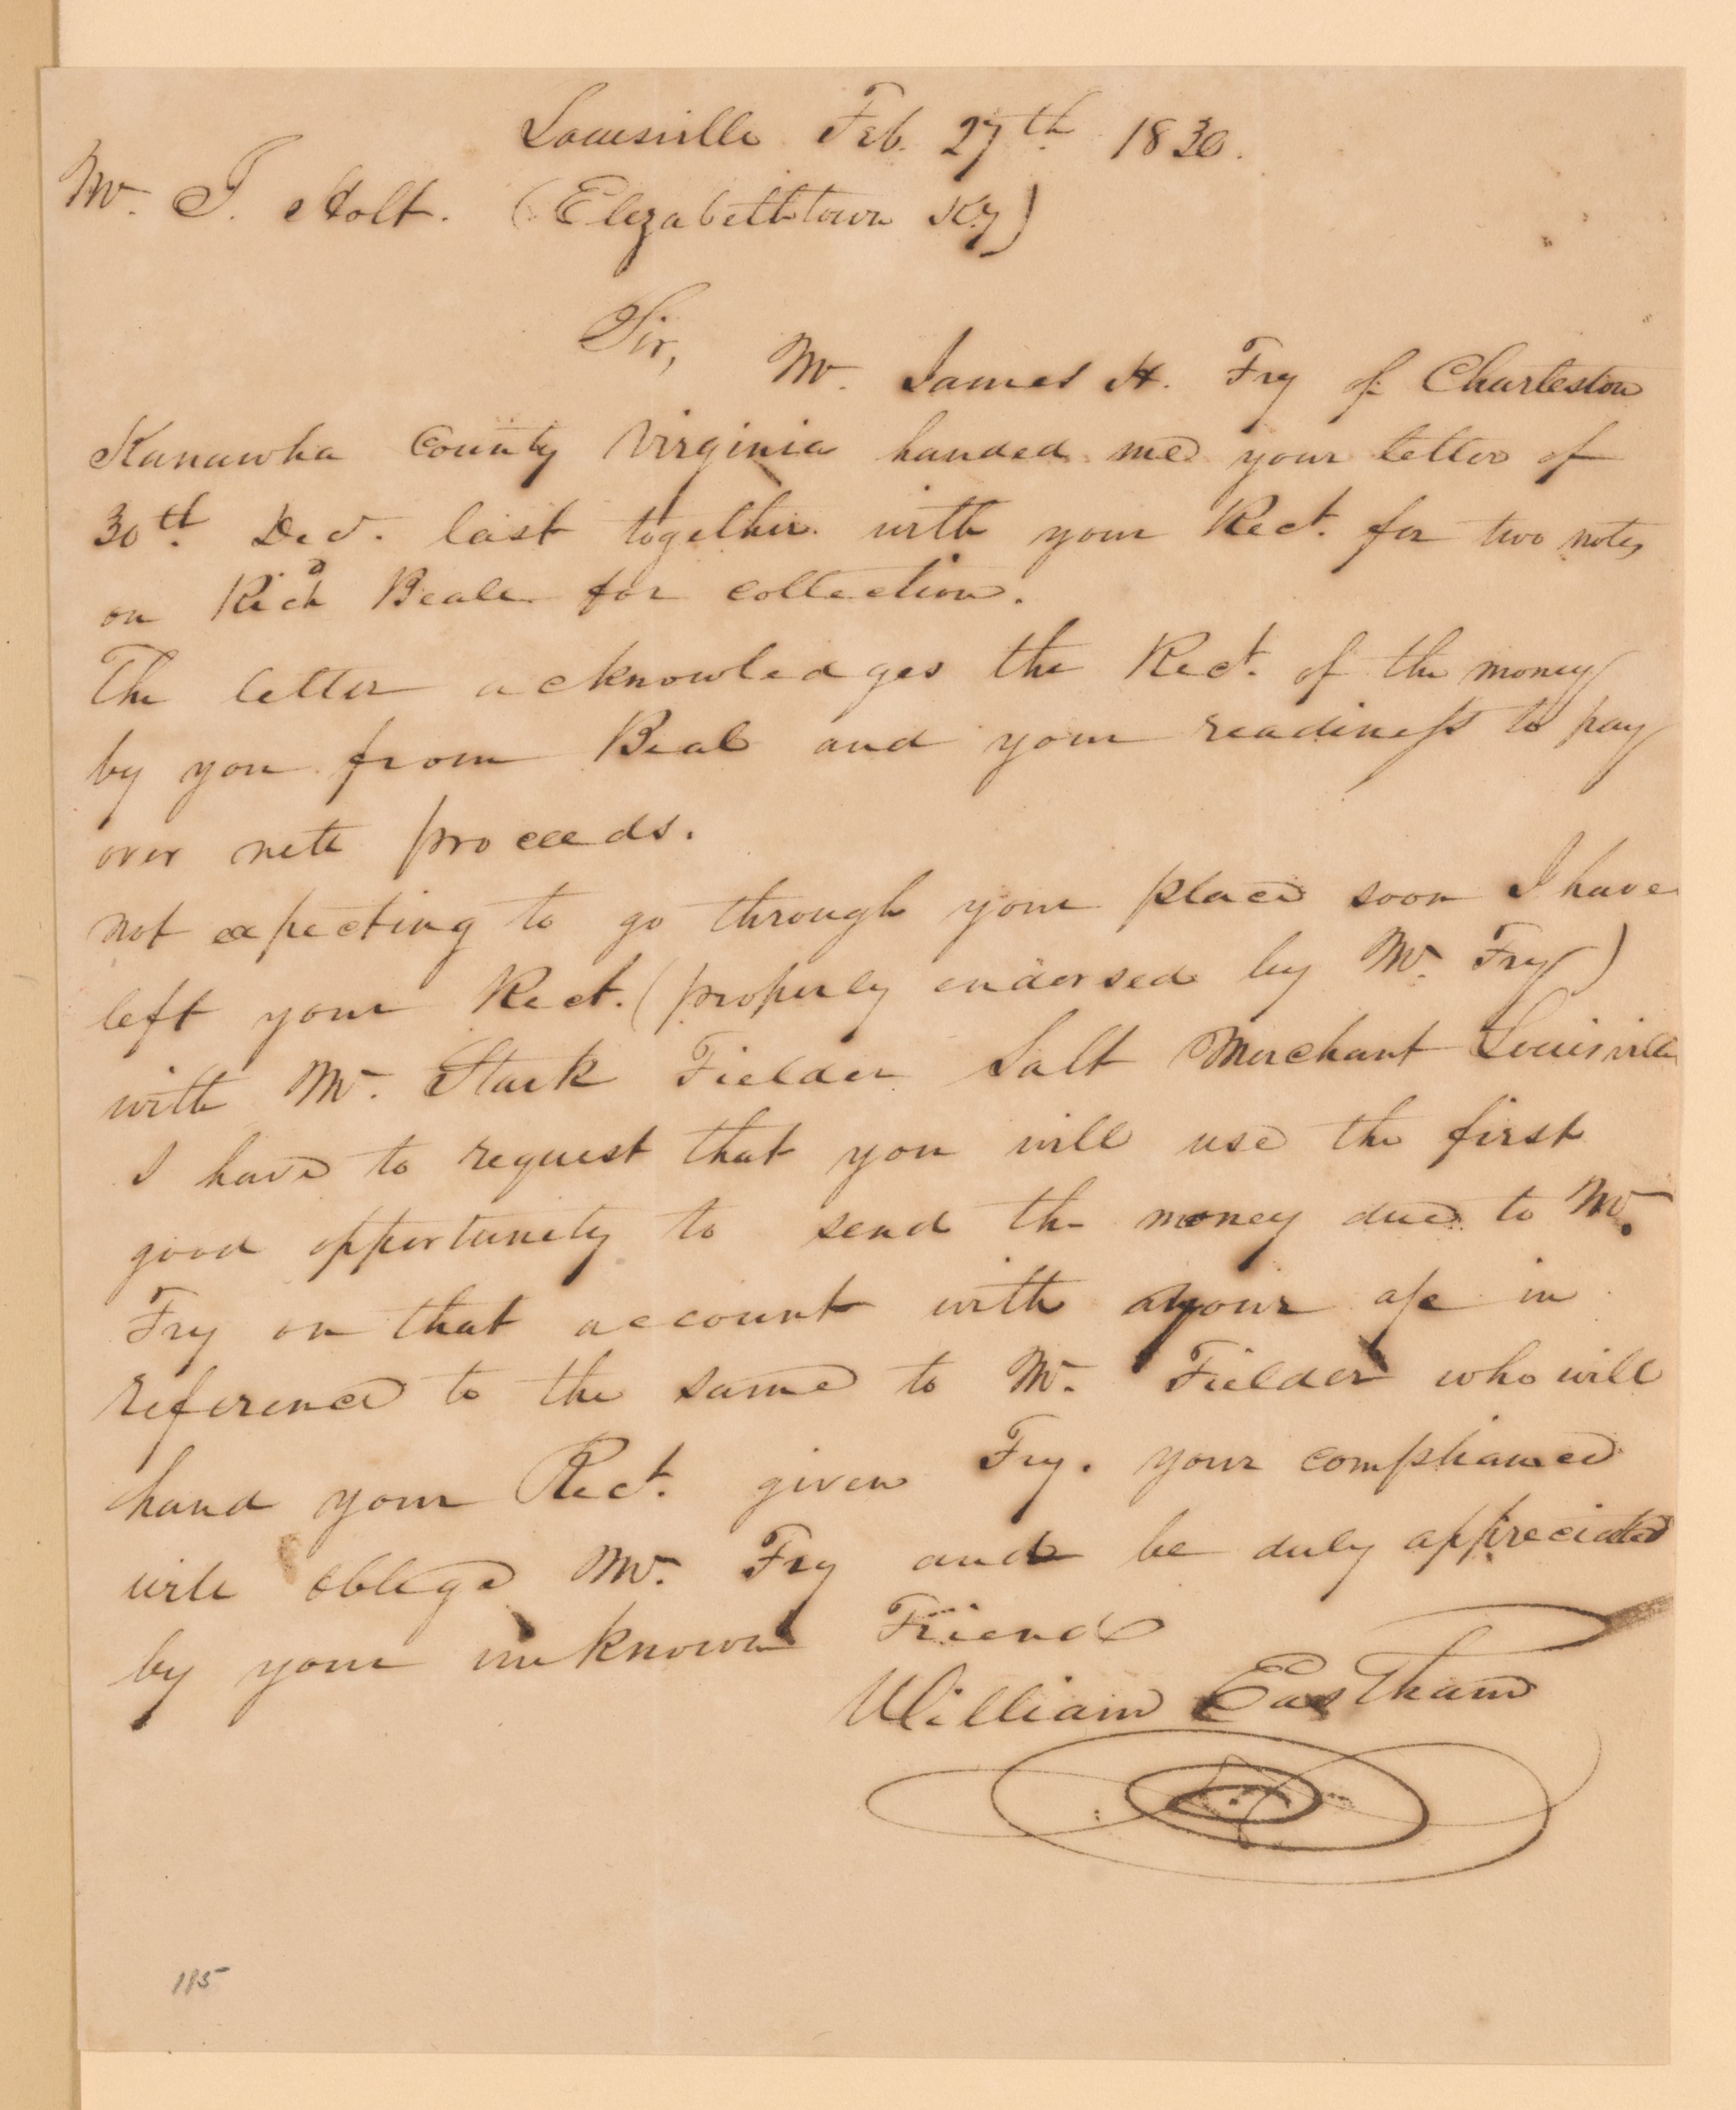 Louisville Feb. 27th 1830.
Mr. J. Holt. (Elizabethtown Ky)
Sir,
Mr. James H. Fry of Charleston
Kanawha County Virginia handed me your letter of
30th. Dec. last together with your Rect. for two notes
on Richd Beale for collection.
The letter acknowledges the Rect. of the money
by you from Beal and your readiness to pay
over nett proceeds.
not expecting to go through your place soon I have
left your Rect. (properly endorsed by Mr. Fry)
with Mr. Stark Fielder Salt Merchant Louisville
I have to request that you will use the first
good opportunity to send the money due to Mr.
Fry on that account with your a/c in
reference to the same to Mr. Fielder who will
hand your Rect. given Fry. your compliance
will oblige Mr. Fry and be duly appreciated
by your unknown Friend
William Eastham
185